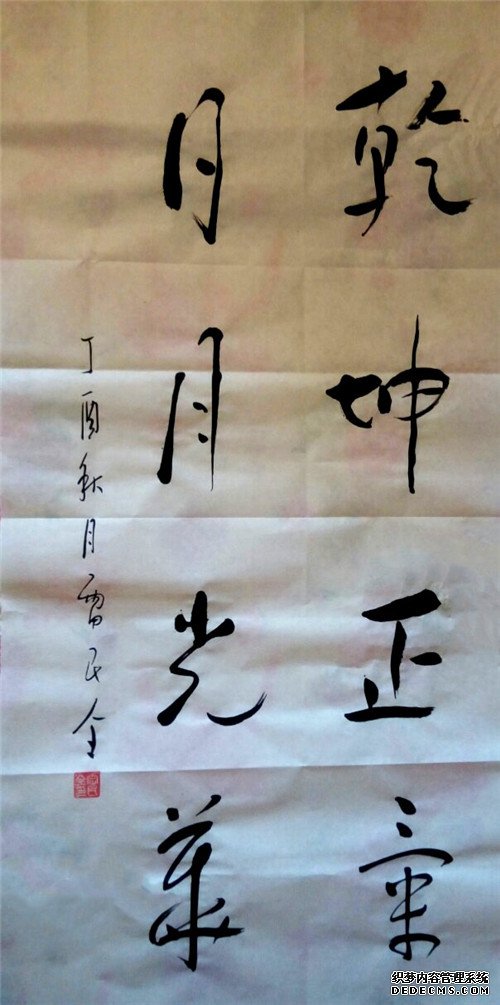 乾坤正氣
日月光華
丁酉秋月雷民全
织梦内容管理系统
DEDECMS.COM